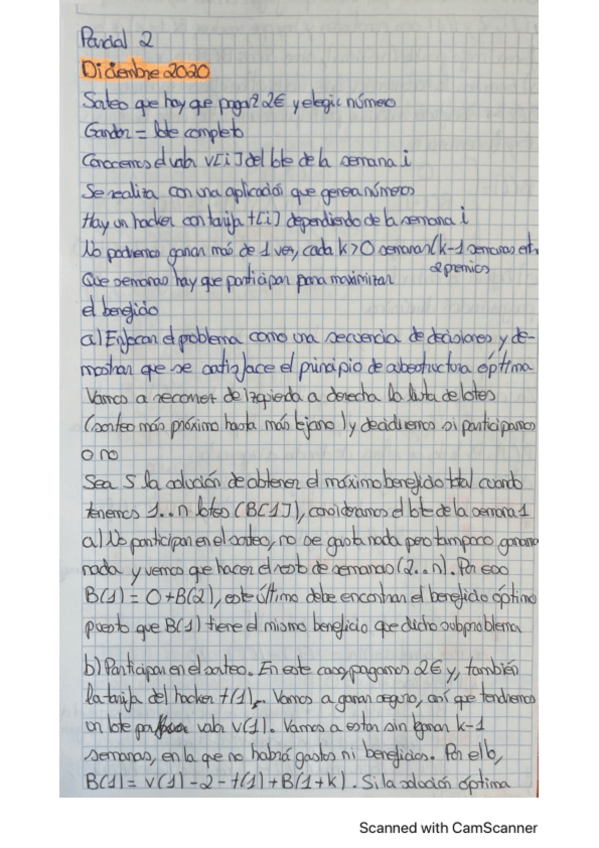 Parcial 2
Diciembre 2020
Sorteo que hay que pagar 2€ y elegir número
Ganador = lote completo
Conocemos el valor v[i] del lote de la semana i
Se realiza con una aplicación que genera números
Hay un hacker con tarifa t[i] dependiendo de la semana i
No podremos ganar más de 1 vez, cada k>0 semanas (k-1 semanas ent.
2 premios
Que semanas hay que participar para maximizar
el beneficio
a) Enfocar el problema como una secuencia de decisiones y de-
mostrar que se satisface el principio de subestructura óptima
Vamos a recorrer de izquierda a derecha la lista de lotes
(sorteo más próximo hasta más lejano) y decidiremos si participamos
o no
Sea S la solución de obtener el máximo beneficio total cuando
tenemos 1..n lotes (B(1)), consideramos el lote de la semana 1
a) No participar en el sorteo, no se gasta nada pero tampoco ganamos
nada y vemos que hacer el resto de semanas (2..n). Por eso
B(1) = 0+B(2), este último debe encontrar el beneficio óptimo
puesto que B(1) tiene el mismo beneficio que dicho subproblema
b) Participar en el sorteo. En este caso, pagamos 2€ y, también
la tarifa del hacker t(1). Vamos a ganar seguro, así que tendremos
un lote por valor v(1). Vamos a estar sin ganar k-1
semanas, en la que no habrá gastos ni beneficios. Por ello,
B(1) = v(1)-2-t(1)+B(1+k). Si la solución óptima
Scanned with CamScanner